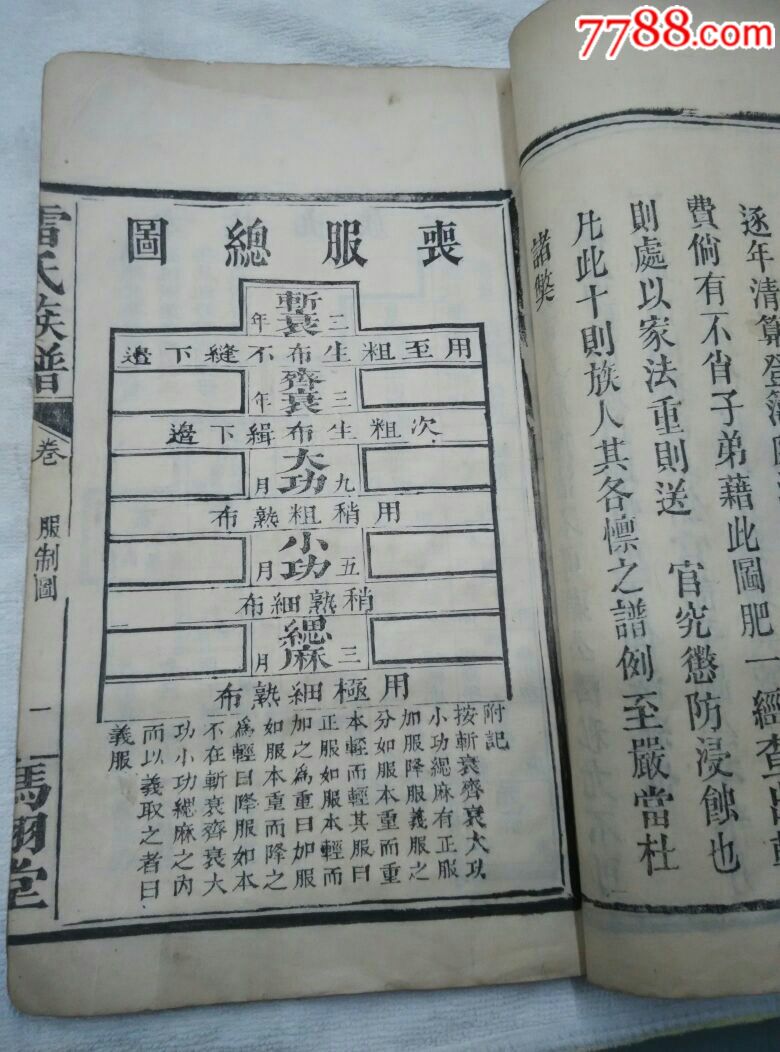 7788.com
逐年清算登簿
費倘有不省子弟藉此圖肥一經查出重
則處以家法重則送 官究懲防浸蝕也
凡此十則族人其各懍之譜例至嚴當杜
諸獘
喪服總圖
斬衰三年
用至粗生布不縫下邉
齊衰三年
次粗生布緝下邉
大功九月
用稍粗熟布
小功五月
稍熟細布
緦麻三月
用極細熟布
附記
按斬衰齊衰大功
小功緦麻有正服
加服降服義服之
分如服本重而重
本輕而輕其服曰
正服如服本輕而
加之為重曰加服
如服本重而降之
爲輕曰降服如本
不在斬衰齊衰大
功小功緦麻之內
而以義取之者曰
義服
雷氏族譜
卷
服制圖
一
馮翊堂